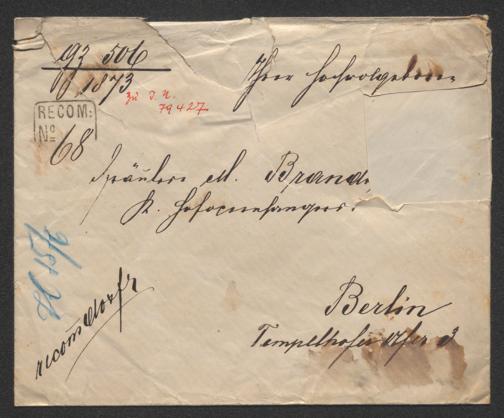 93 506
1873
zu I. N.
79427
RECOM:
Nº 68
Ihrer Hochwolgeboren
Fräulein M. Brand
K.
Berlin
Tempelhofer Ufer 3